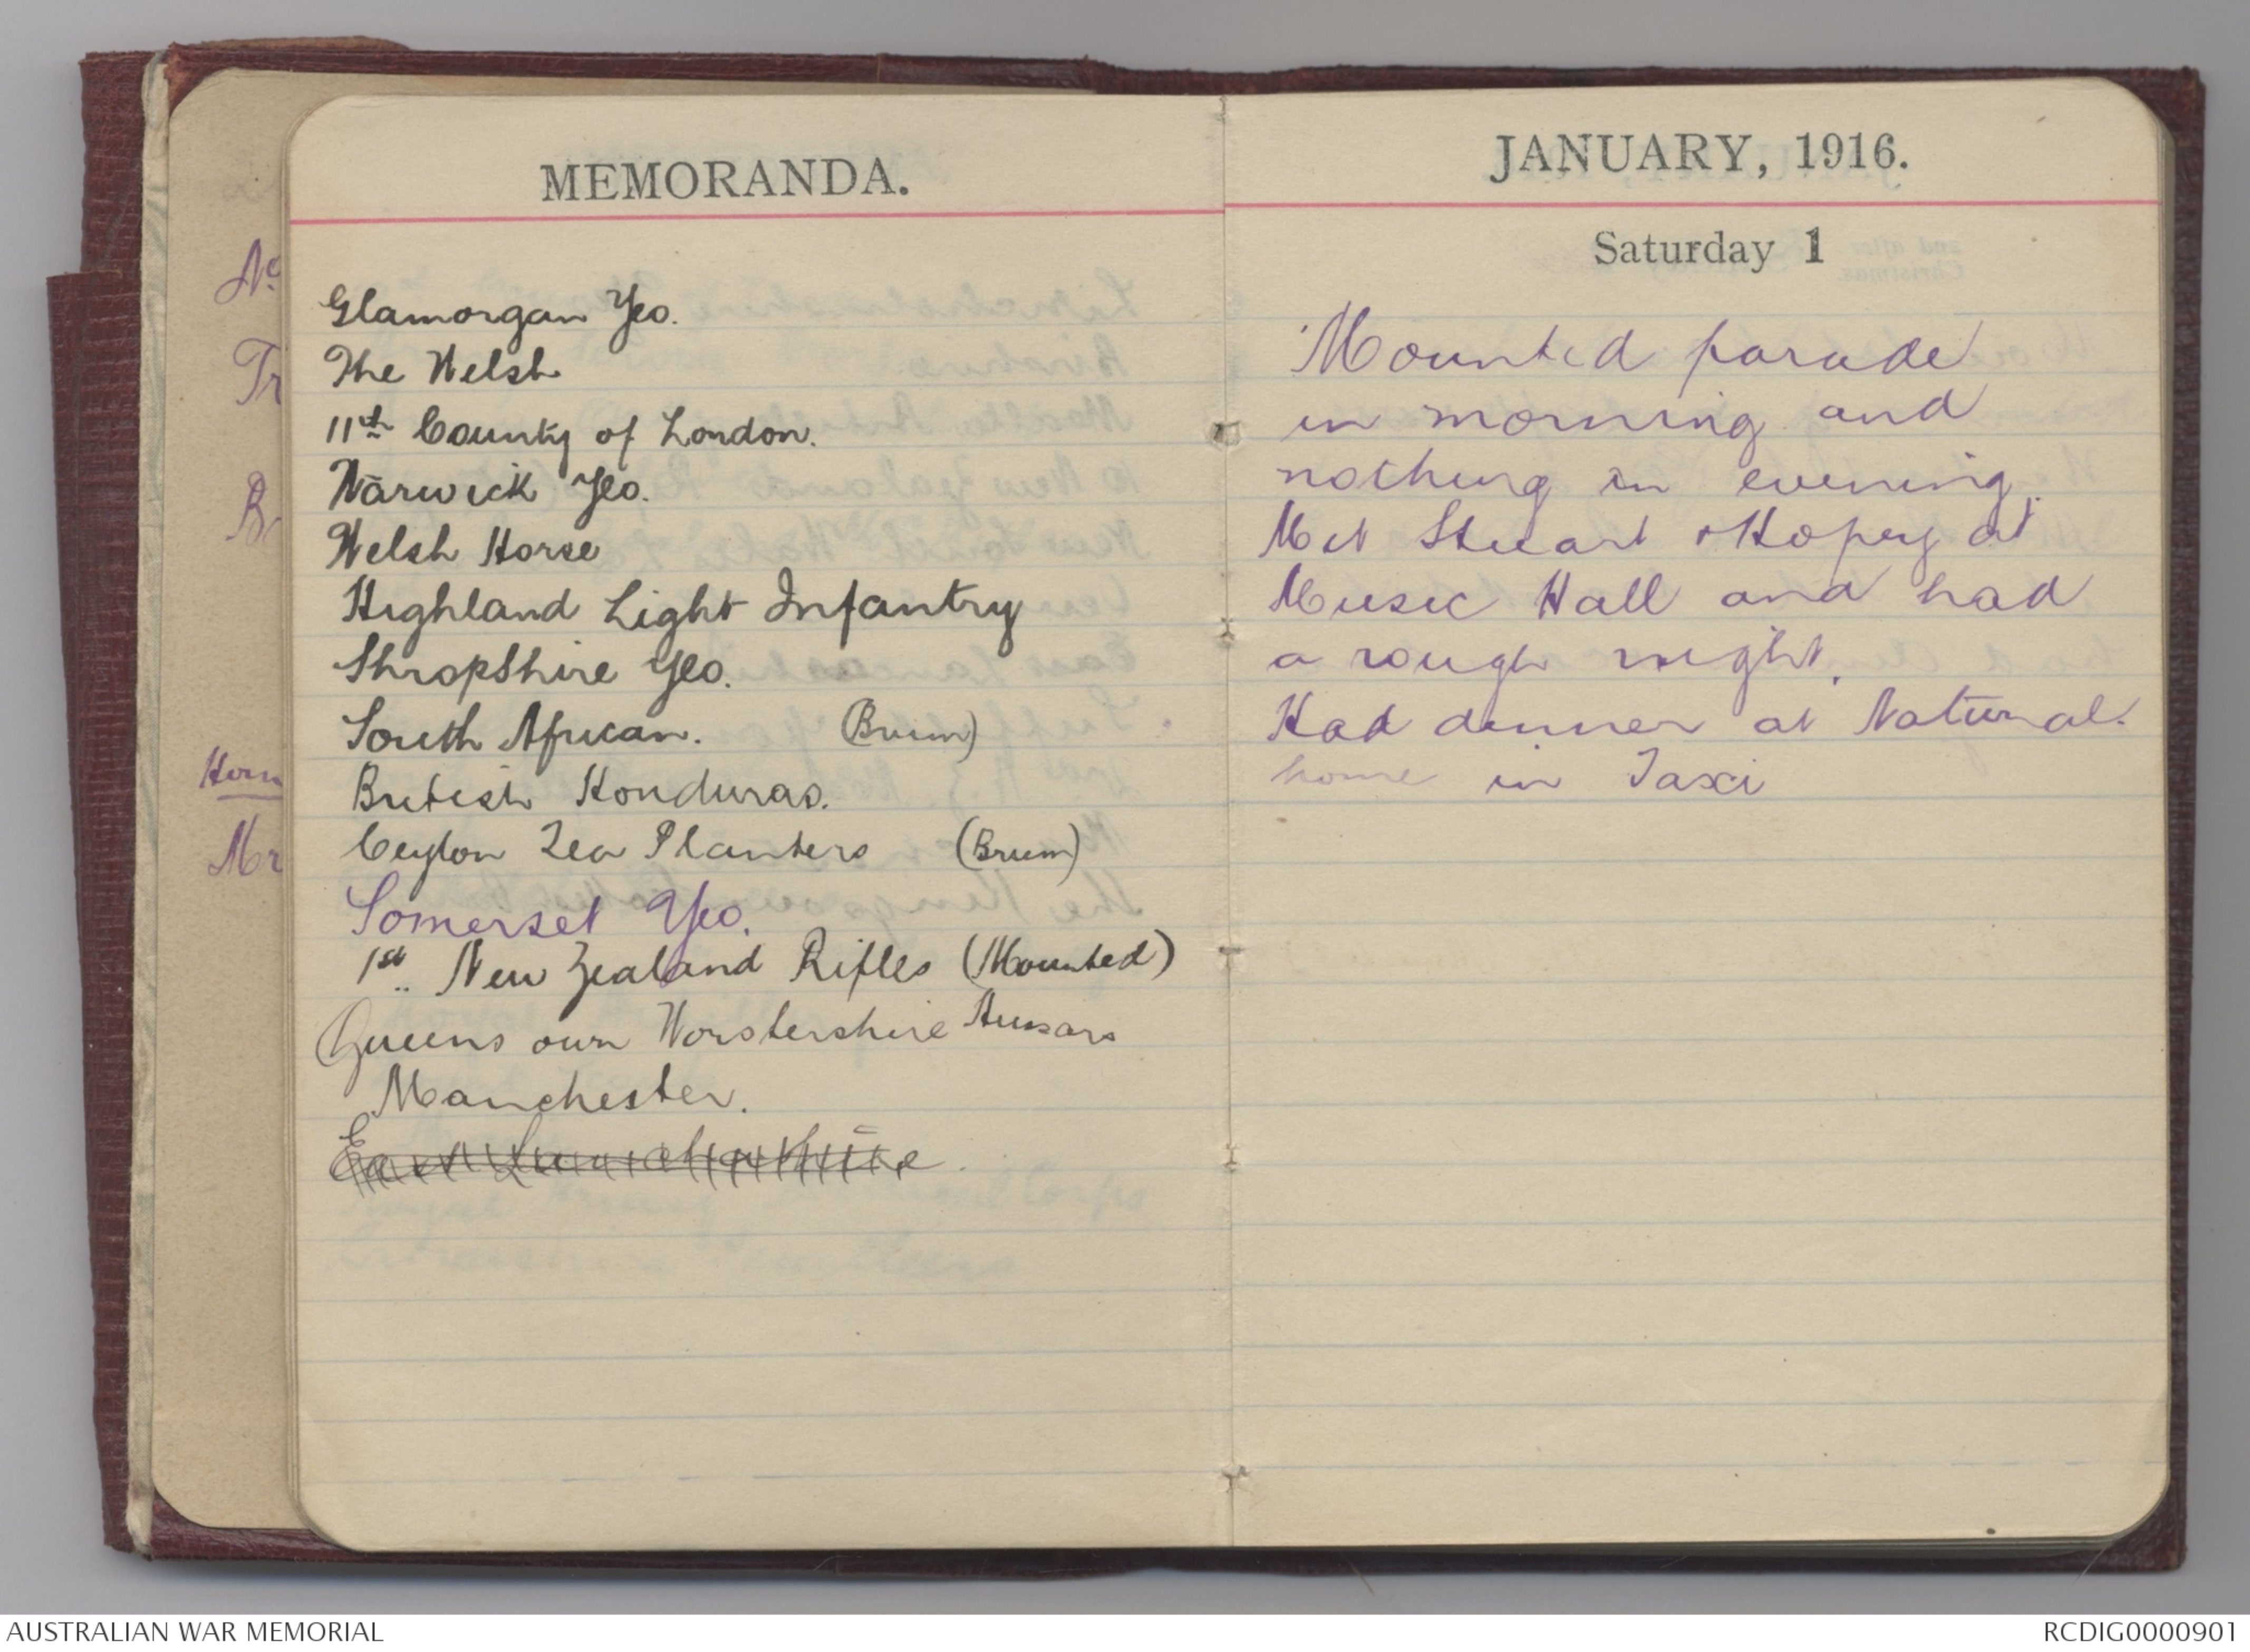 MEMORANDA.
Glamorgan Yeo.
The Welsh
11th County of London.
Warwick Yeo.
Welsh Horse
Highland Light Infantry
ShropShire Yeo.
South African. (Brum)
British Honduras.
Ceylon Tea Planters (Brum)
Somerset Yeo.
1st New Zealand Rifles (Mounted)
Queens own Worstershire Hussars
Manchester.
JANUARY, 1916.
Saturday 1
Mounted parade
in morning and
nothing in evening.
Met Stuart + at
Music Hall and had
a rough night.
Had dinner at National.
home in Taxi
No
Tr
Hom
Mr
AUSTRALIAN WAR MEMORIAL
RCDIG0000901